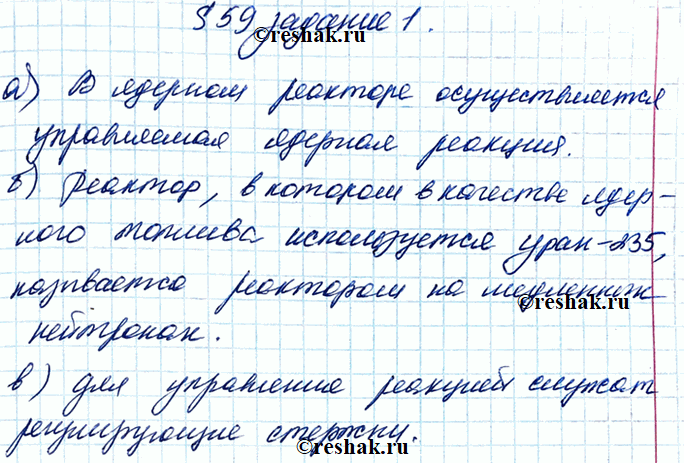 § 59 задание 1.
©reshak.ru
а) В ядерном реакторе осуществляется
управляемая ядерная реакция.
©reshak.ru
б) Реактор, в котором в качестве ядер-
ного топлива используется уран-235,
называется реактором на медленных
©reshak.ru
нейтронах.
©reshak.ru
в) Для управления реакцией служат
регулирующие стержни.
©reshak.ru